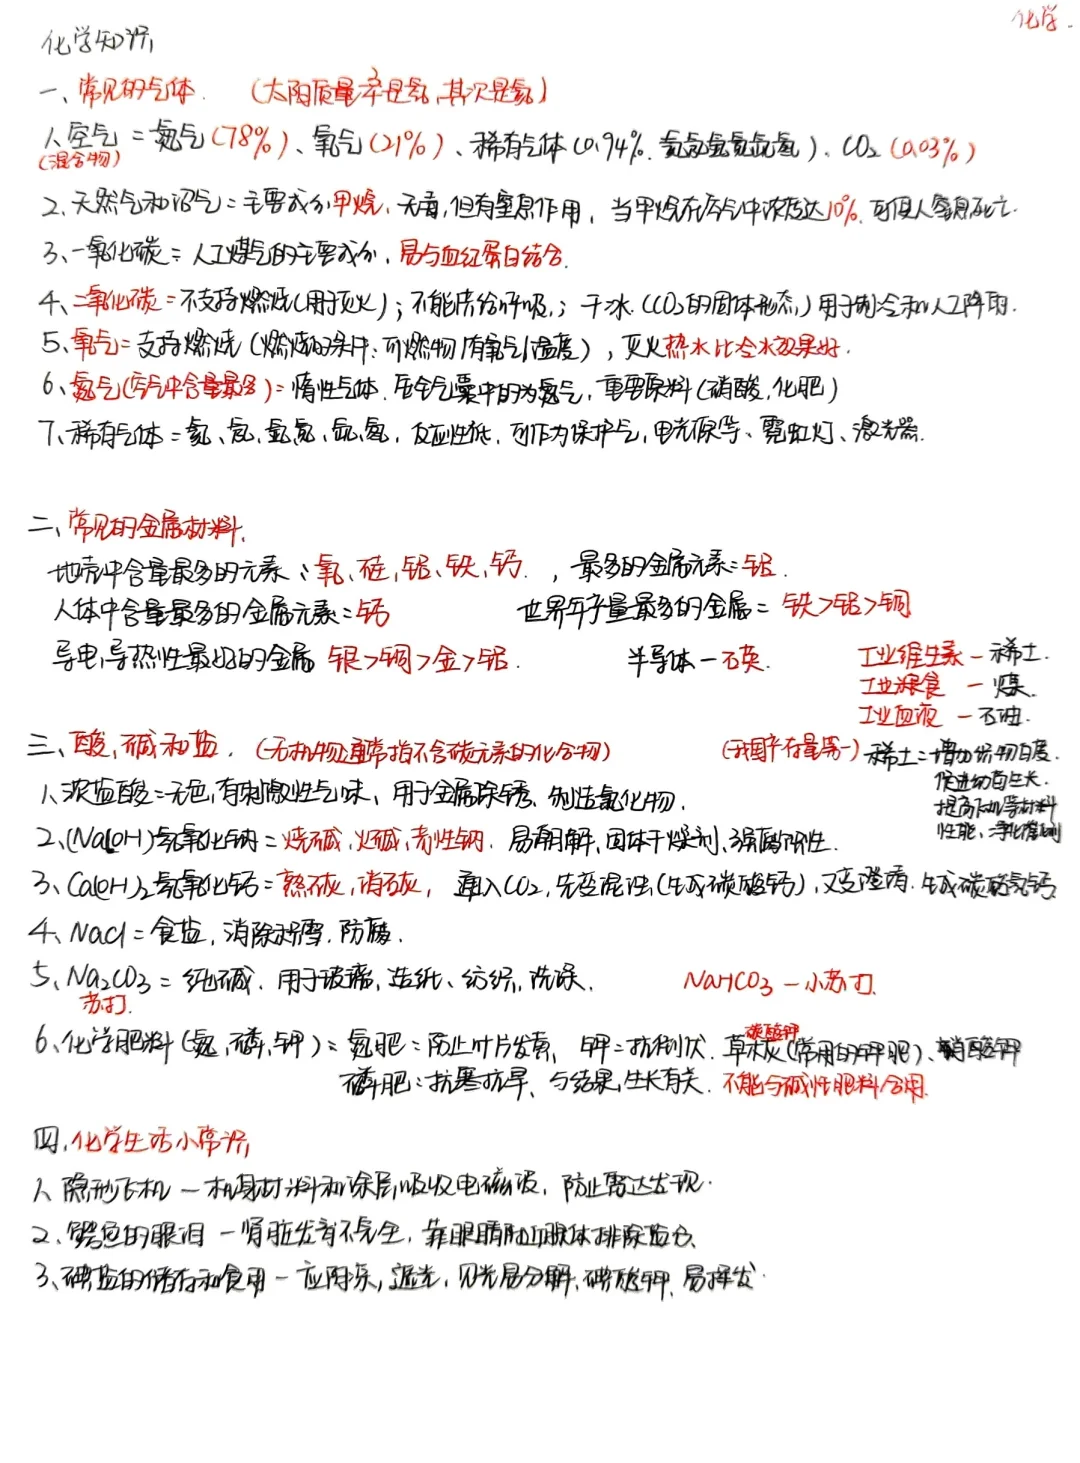 化学.
化学知识
一、常见的气体. (太阳质量3/4是氢,其次是氦)
1、空气 = 氮气(78%)、氧气(21%)、稀有气体(0.94%.氦氖氩氪氙氡)、CO₂(0.03%)
(混合物)
2、天然气和沼气=主要成分甲烷,无毒,但有窒息作用,当甲烷在空气中浓度达10%,可使人窒息死亡.
3、一氧化碳=人工煤气的主要成分,易与血红蛋白结合.
4、二氧化碳=不支持燃烧(用于灭火);不能供给呼吸;干冰(CO₂的固体形态)用于制冷和人工降雨.
5、氧气=支持燃烧(燃烧的条件:可燃物/有氧气/温度),灭火热水比冷水效果好.
6、氮气(空气中含量最多)=惰性气体.安全气囊中的为氮气,重要原料(硝酸,化肥)
7、稀有气体=氦、氖、氩、氪、氙、氡,反应性低,可作为保护气,电光源等、霓虹灯、激光器.
二、常见的金属材料.
地壳中含量最多的元素:氧、硅、铝、铁、钙. ,最多的金属元素=铝.
人体中含量最多的金属元素=钙 世界年产量最多的金属=铁>铝>铜
导电,导热性最好的金属 银>铜>金>铝. 半导体-石英. 工业维生素-稀土.
工业粮食-煤.
工业血液-石油.
三、酸、碱和盐.(无机物通常指不含碳元素的化合物) (我国产存量第一)稀土=增加织物白度.
促进幼苗生长.
提高飞机等材料
性能、净化
1、浓盐酸=无色,有刺激性气味、用于金属除锈、制造氯化物.
2、(NaOH)氢氧化钠=烧碱、火碱、苛性钠.易潮解、固体干燥剂、强腐蚀性.
3、Ca(OH)₂氢氧化钙=熟石灰,消石灰,通入CO₂,先变混浊(生成碳酸钙),又变澄清.生成碳酸氢钙
4、NaCl=食盐,消除积雪.防腐.
5、Na₂CO₃=纯碱.用于玻璃,造纸、纺织,洗涤. NaHCO₃-小苏打.
苏打.
6、化学肥料(氮、磷、钾)=氮肥=防止叶片发黄,钾=抗倒伏.草木灰(常用的钾肥)、硝酸钾
碳酸钾
磷肥=抗寒抗旱、与结果,生长有关.不能与碱性肥料合用.
四.化学生活小常识
1、隐形飞机-机身材料和涂层,吸收电磁波,防止雷达发现.
2、鳄鱼的眼泪-肾脏发育不完全,靠眼睛附近腺体排除盐分、
3、碘盐的储存和食用-应阴凉,遮光,见光易分解.碘酸钾、易挥发.